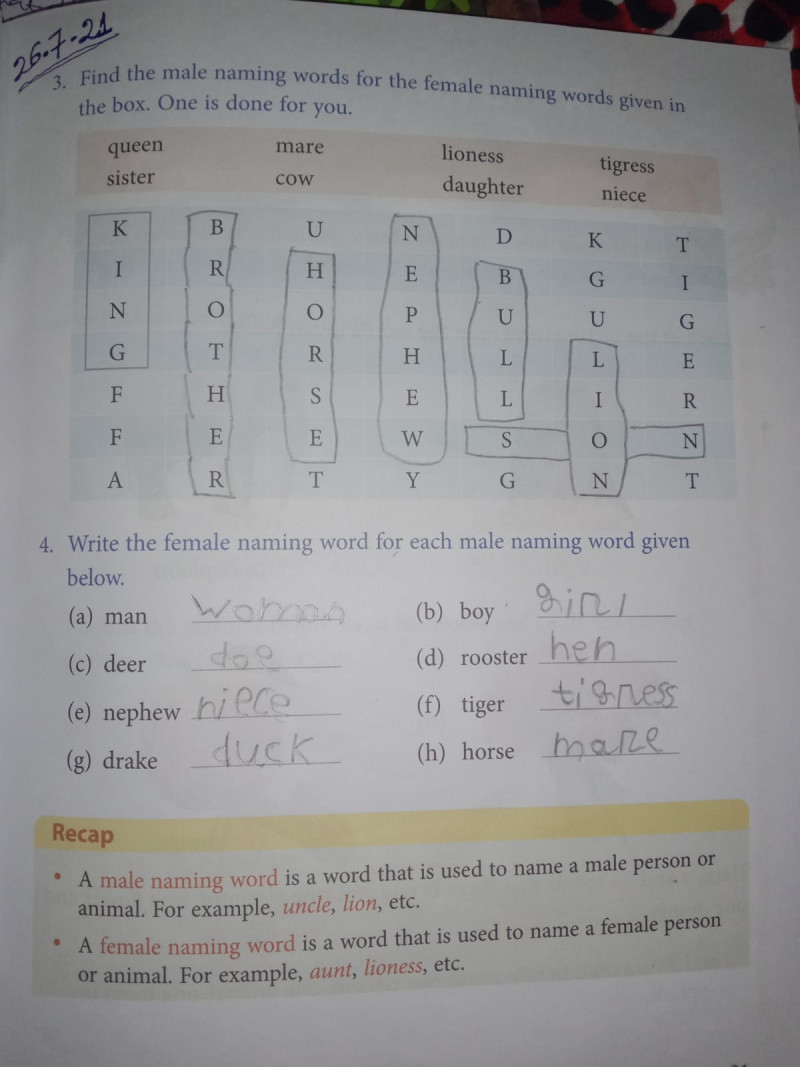 26.7.21
3. Find the male naming words for the female naming words given in
the box. One is done for you.
queen mare lioness tigress
sister cow daughter niece
K B U N D K T
I R H E B G I
N O O P U U G
G T R H L L E
F H S E L I R
F E E W S O N
A R T Y G N T
4. Write the female naming word for each male naming word given
below.
(a) man woman (b) boy girl
(c) deer doe (d) rooster hen
(e) nephew niece (f) tiger tigress
(g) drake duck (h) horse mare
Recap
• A male naming word is a word that is used to name a male person or
animal. For example, uncle, lion, etc.
• A female naming word is a word that is used to name a female person
or animal. For example, aunt, lioness, etc.